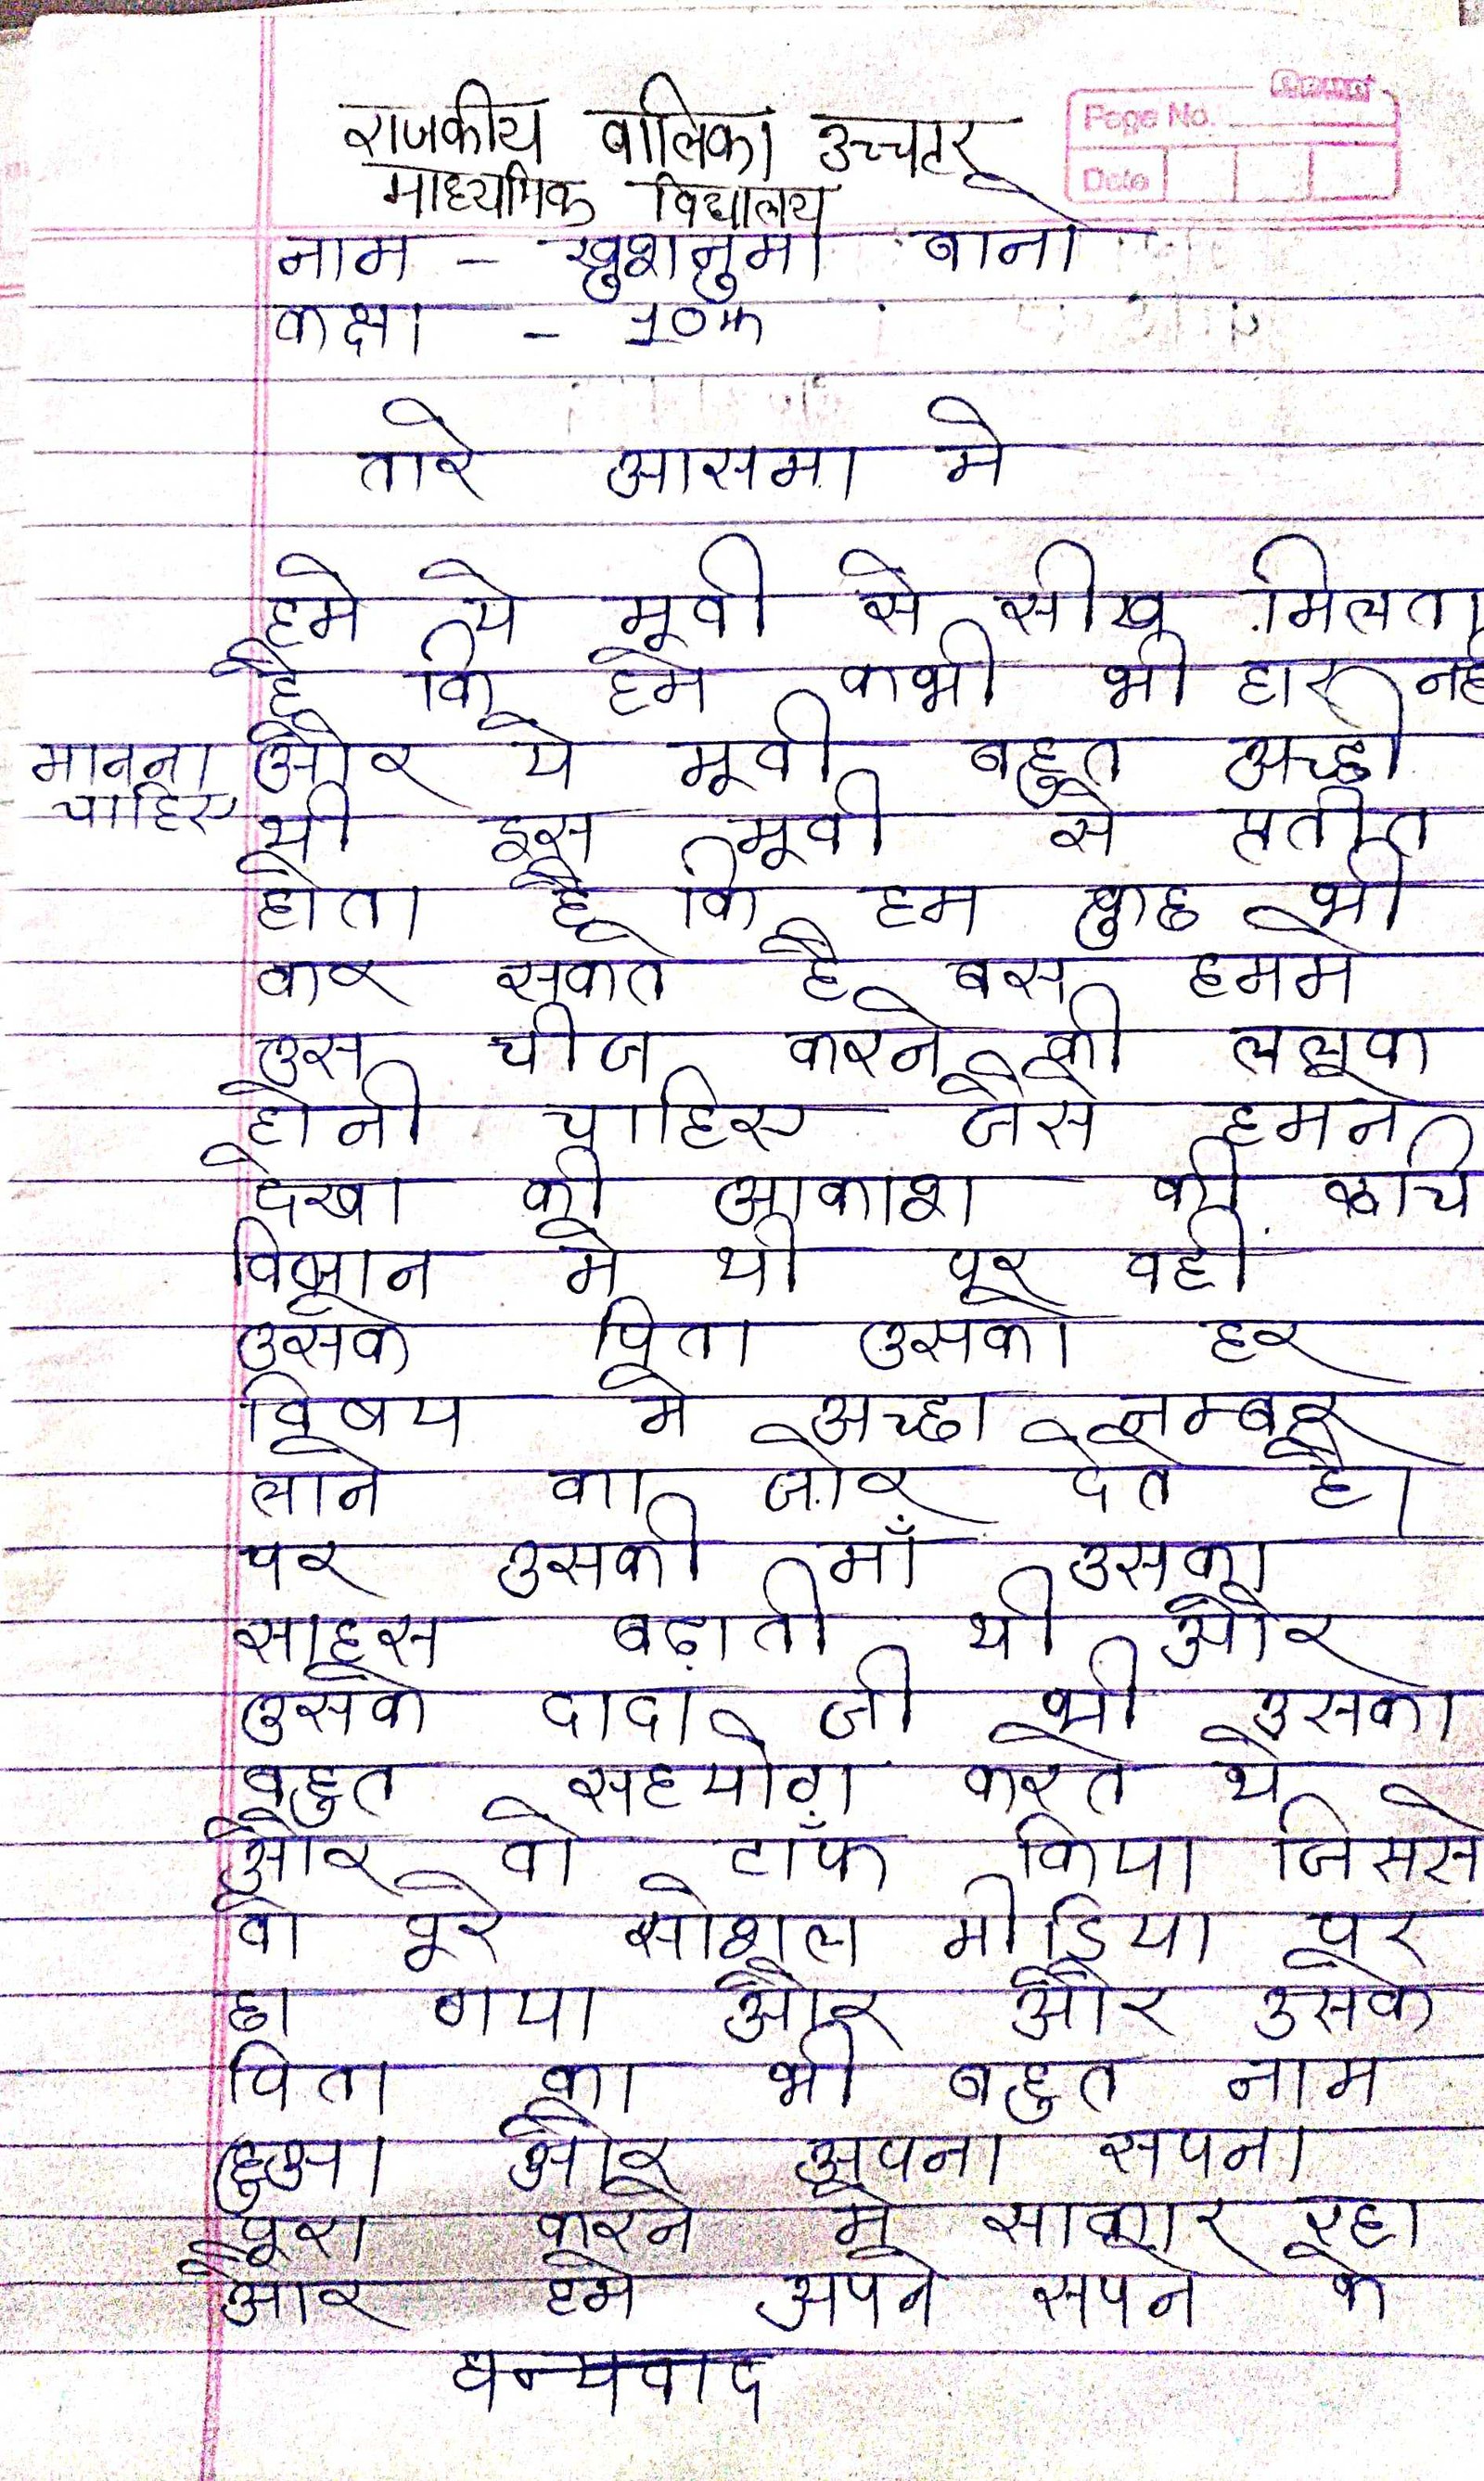 राजकीय बालिका उच्चतर
माध्यमिक विद्यालय
Page No.
Date
नाम - खुशनुमा बानो
कक्षा - 10th
तारे आसमा मे
हमे ये मूवी से सीख मिलता
है कि हमे कभी भी हार नही
मानना चाहिए
और ये मूवी बहुत अच्छी
थी इस मूवी से प्रतीत
होता है कि हम कुछ भी
कर सकते है बस हममे
उस चीज करने की ललक
होनी चाहिए जैसे हमने
देखा की आकाश की रूचि
विज्ञान मे थी पर वही
उसके पिता उसको हर
विषय मे अच्छा नम्बर
लाने का जोर देते है।
पर उसकी माँ उसका
साहस बढ़ाती थी और
उसके दादा जी भी उसका
बहुत सहयोग करते थे
और वो टॉप किया जिससे
वो पूरे सोशल मीडिया पर
छा गया और और उसके
पिता का भी बहुत नाम
हुआ और अपना सपना
पूरा करने मे साकार रहा
और हमे अपने सपने के
धन्यवाद